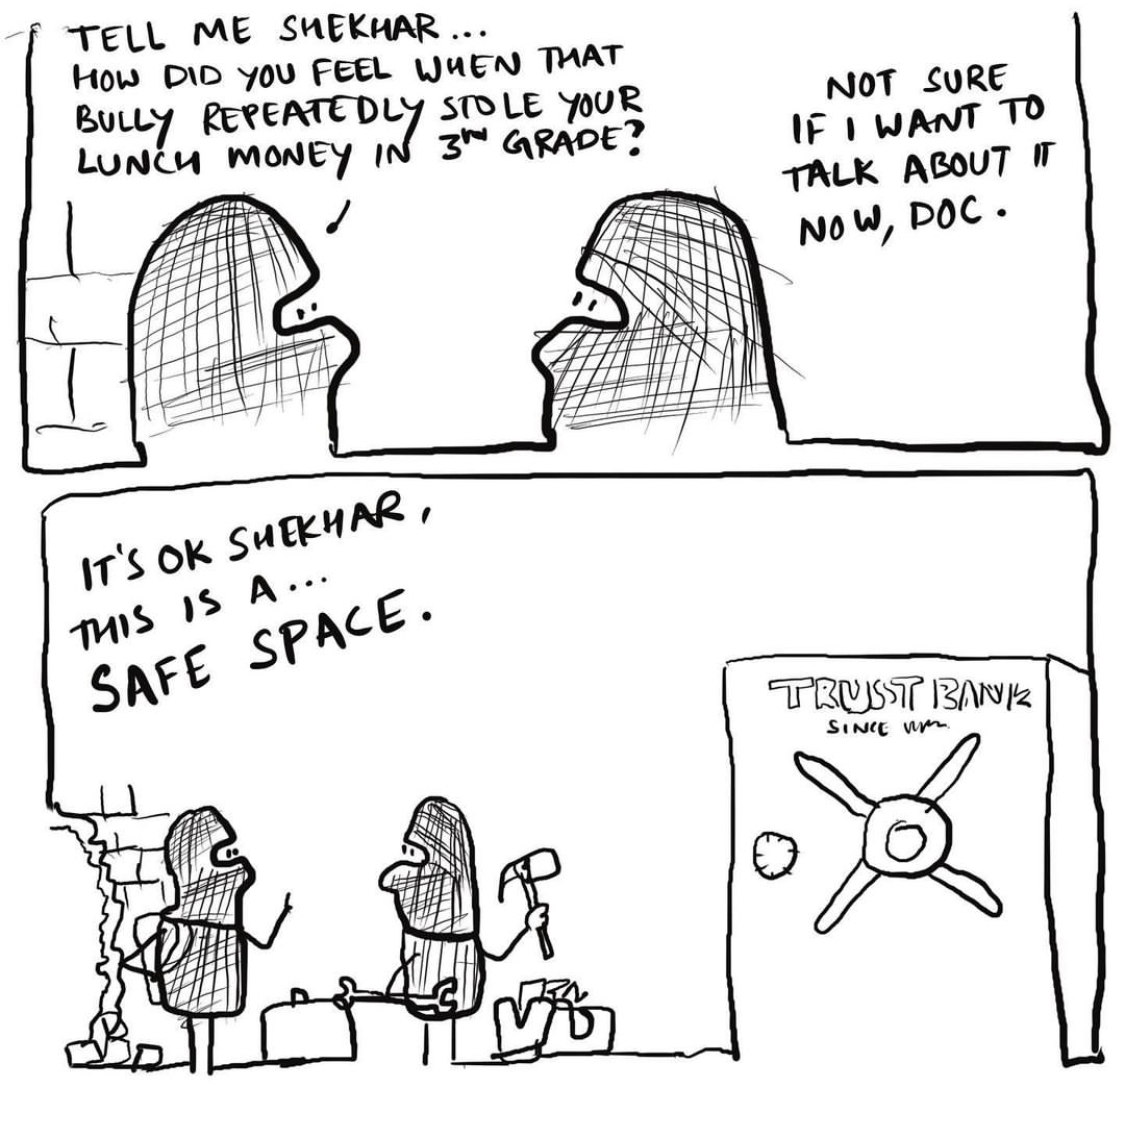 TELL ME SHEKHAR...
HOW DID YOU FEEL WHEN THAT
BULLY REPEATEDLY STOLE YOUR
LUNCH MONEY IN 3RD GRADE?
NOT SURE
IF I WANT TO
TALK ABOUT IT
NOW, DOC.
IT'S OK SHEKHAR,
THIS IS A...
SAFE SPACE.
TRUST BANK
SINCE